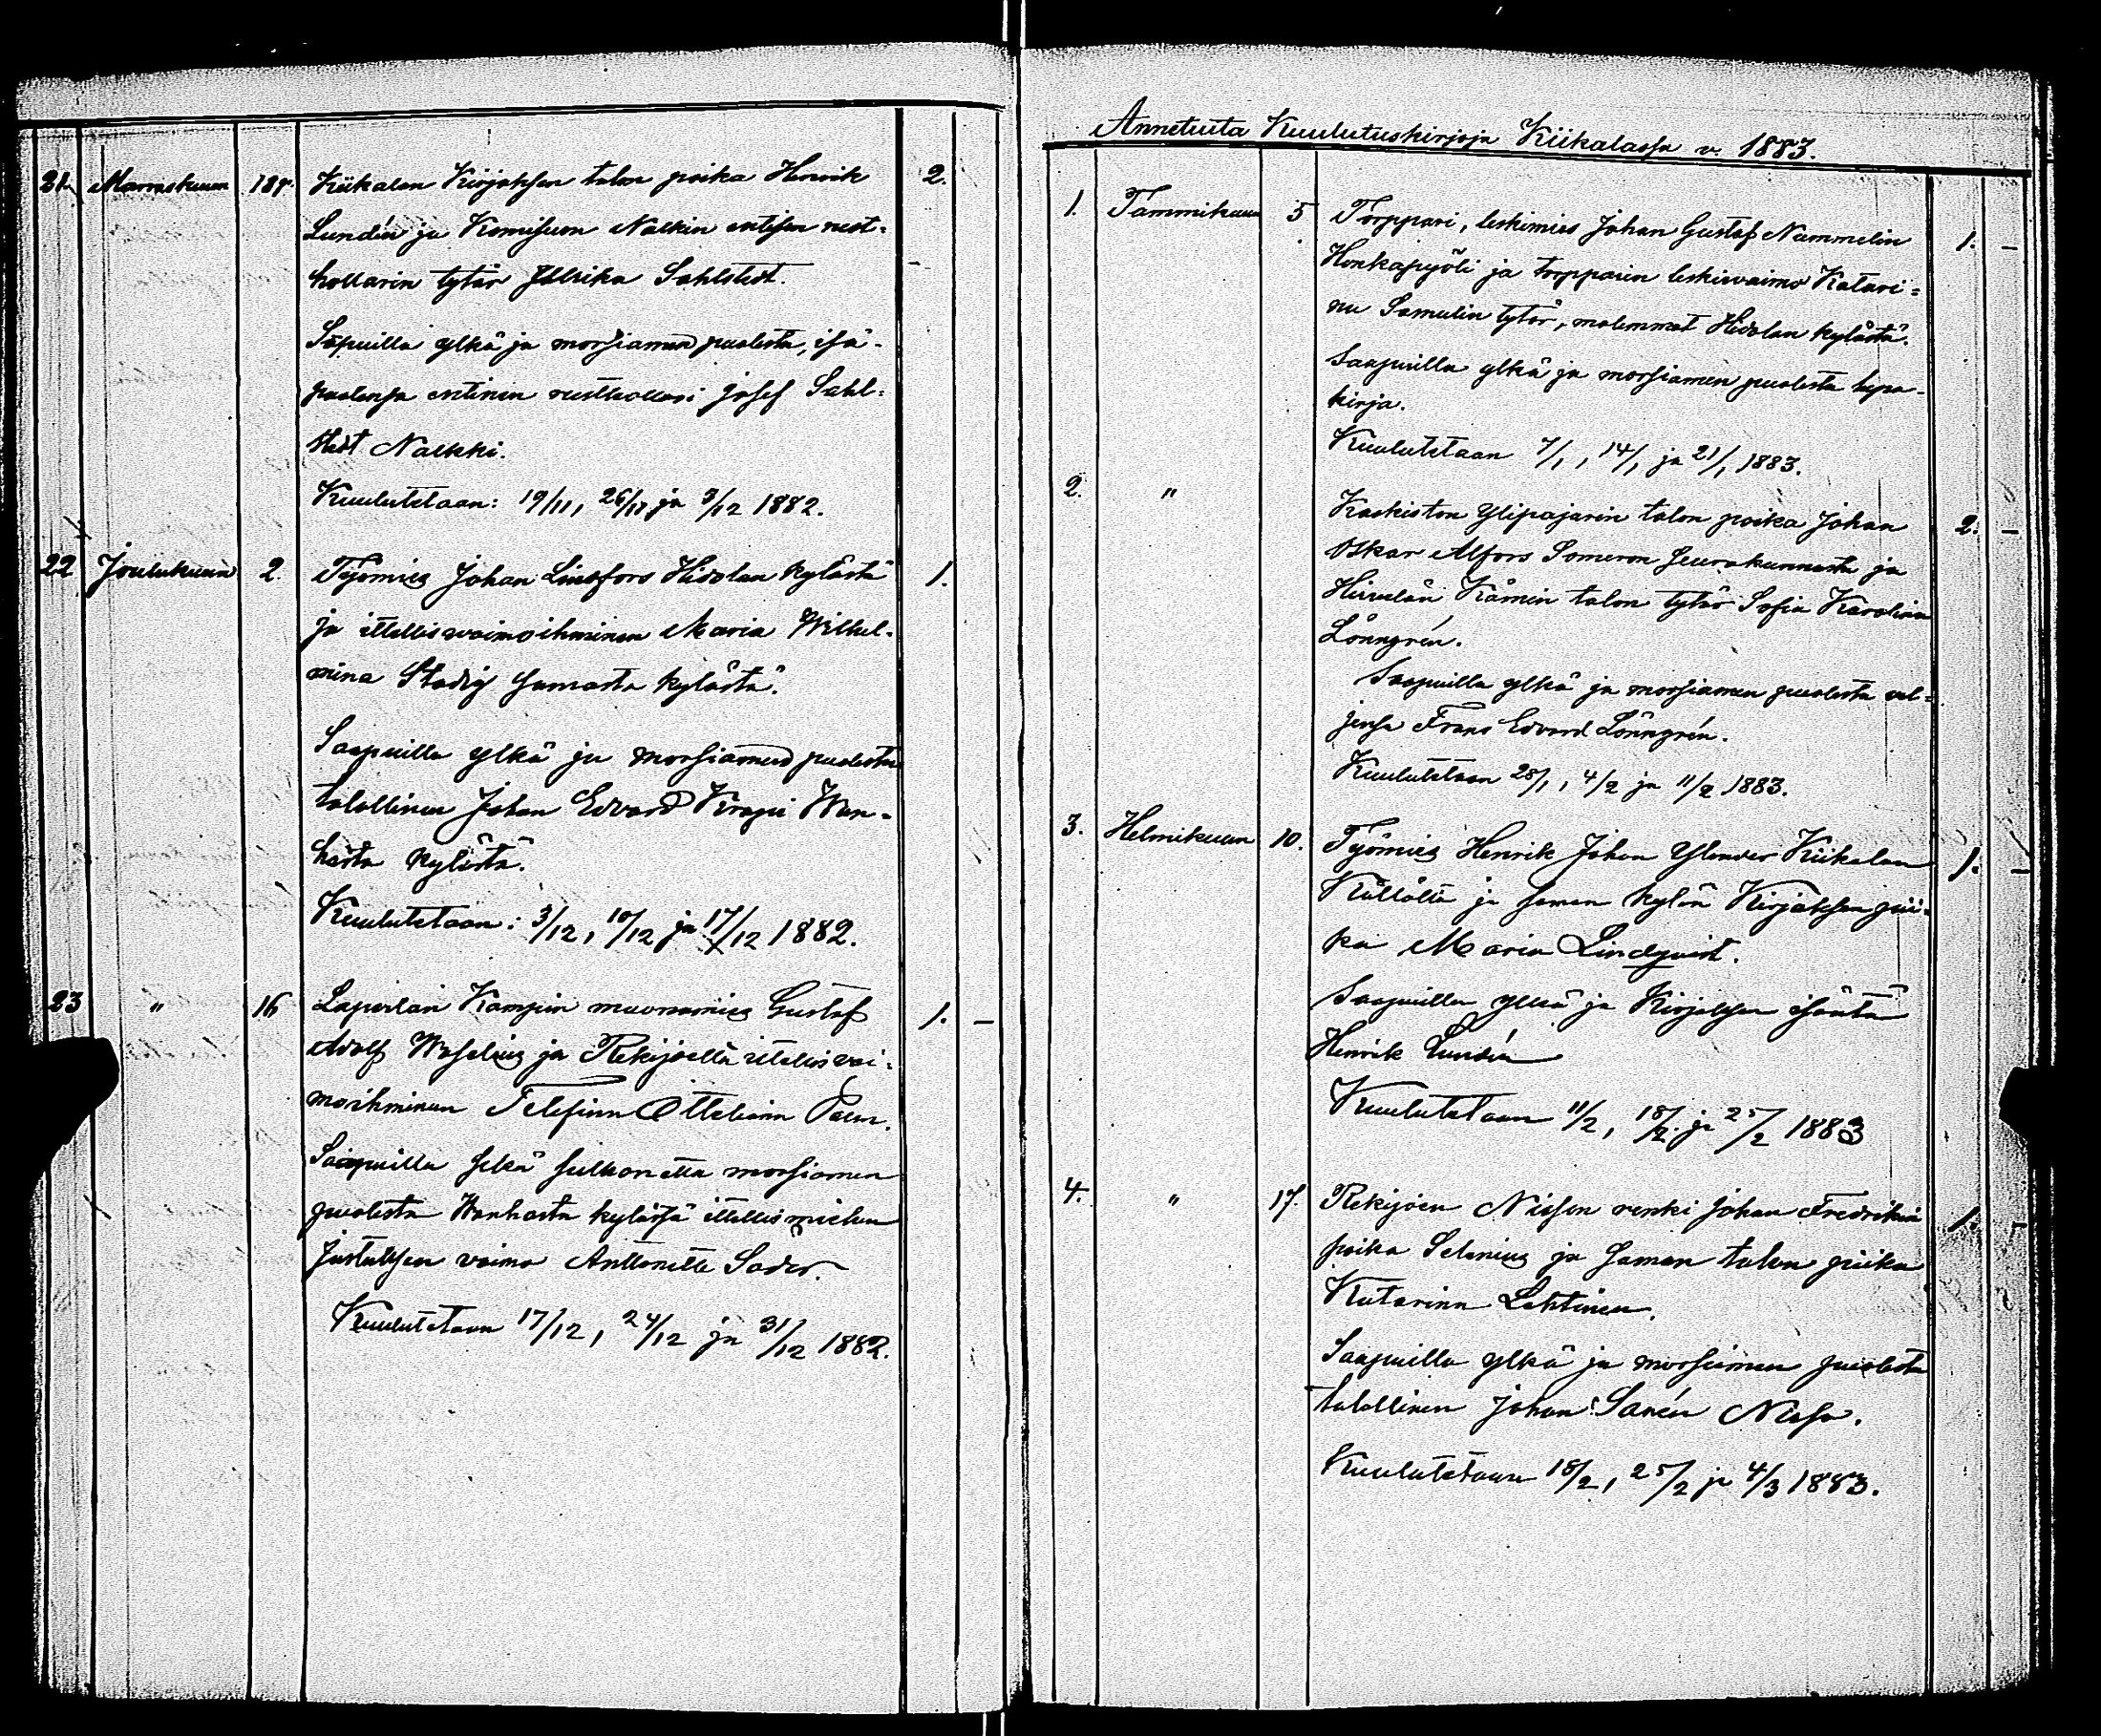 21. Marraskuun 18p. Kiikalan Kirjaksen talon poika Henrik 2.
Lundén ja Komisuon Nalkin entisen rust-
hollarin tytär Ullrika Sahlstedt.
Sapuilla ylkä ja morsiamen puolesta, isä-
puolensa entinen rusthollari Josef Sahl-
stedt Nalkki.
Kuulutetaan: 19/11, 26/11 ja 3/12 1882.
22 Joulukuun 2. Työmies Johan Lindfors Hidolan kylästä 1.
ja itellisvaimoihminen Maria Wilhel-
mina Stadig samasta kylästä.
Saapuilla ylkä ja morsiamen puolesta
talollinen Johan Edvard Krapi Wan-
hasta kylästä.
Kuulutetaan: 3/12, 10/12 ja 17/12 1882.
23 " 16 Laperlan Kampin muonamies Gustaf 1. —
Adolf Waselius ja Rekijoella itellisvai-
moihminen Otteliana Palm.
Saapuilla sekä sulhon että morsiamen
puolesta Wanhasta kylässä itellismiehen
Justuksen vaimo Anttonetta Sader.
Kuulutetaan 17/12, 24/12 ja 31/12 1882.
Annetuita Kuulutuskirjoja Kiikalassa v. 1883.
1. Tammikuun 5 Torppari, leskimies Johan Gustaf Nummelin 1. —
Honkapyöli ja torpparin leskivaimo Katari-
na Samulin tytär, molemmat Hidolan kylästä.
Saapuilla ylkä ja morsiamen puolesta lupa-
kirja.
Kuulutetaan 7/1, 14/1 ja 21/1 1883.
2. " Kaskiston Ylipajarin talon poika Johan 2. —
Oskar Alfors Someron seurakunnasta ja
Hirvelän Kämin talon tytär Sofia Karolina
Lönngrén.
Saapuilla ylkä ja morsiamen puolesta vel-
jensä Frans Edvard Lönngrén.
Kuulutetaan 28/1, 4/2 ja 11/2 1883.
3. Helmikuun 10. Työmies Henrik Johan Ylander Kiikalan 1. —
Kültöltä ja saman kylän Kirjaksen pii-
ka Maria Lindqvist.
Saapuilla ylkä ja Kirjaksen isäntä
Henrik Lundén
Kuulutetaan 11/2, 18/2 ja 25/2 1883
4. " 17. Rekijoen Nissen renki Johan Fredrikin 1. —
poika Selenius ja saman talon piika
Katarina Lehtinen.
Saapuilla ylkä ja morsiamen puolesta
talollinen Johan Sanén Nissu.
Kuulutetaan 18/2, 25/2 ja 4/3 1883.